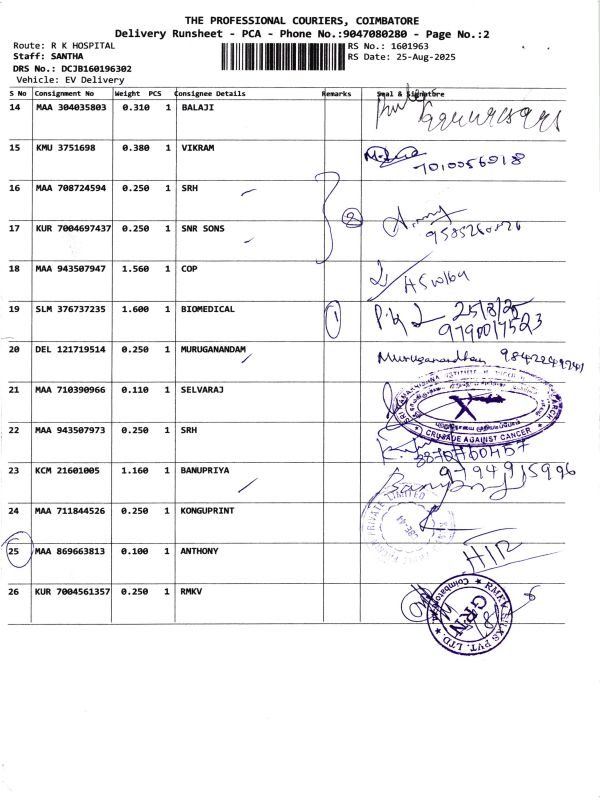 THE PROFESSIONAL COURIERS, COIMBATORE
Delivery Runsheet - PCA - Phone No.:9047080280 - Page No.:2
Route: R K HOSPITAL
RS No.: 1601963
Staff: SANTHA
RS Date: 25-Aug-2025
DRS No.: DCJB160196302
Vehicle: EV Delivery
S No Consignment No Weight PCS Consignee Details Remarks Seal & Signature
14 MAA 304035803 0.310 1 BALAJI
15 KMU 3751698 0.380 1 VIKRAM
7010056918
16 MAA 708724594 0.250 1 SRH
2
17 KUR 7004697437 0.250 1 SNR SONS
18 MAA 943507947 1.560 1 COP
19 SLM 376737235 1.600 1 BIOMEDICAL 1 25/8/25
9790017523
20 DEL 121719514 0.250 1 MURUGANANDAM
Muruganandham 9842249741
21 MAA 710390966 0.110 1 SELVARAJ
22 MAA 943507973 0.250 1 SRH
CRUSADE AGAINST CANCER
23 KCM 21601005 1.160 1 BANUPRIYA 9794915996
24 MAA 711844526 0.250 1 KONGUPRINT
PRIVATE LIMITED
25 MAA 869663813 0.100 1 ANTHONY
26 KUR 7004561357 0.250 1 RMKV
RMKV SILKS PVT. LTD.
Coimbatore
GRN